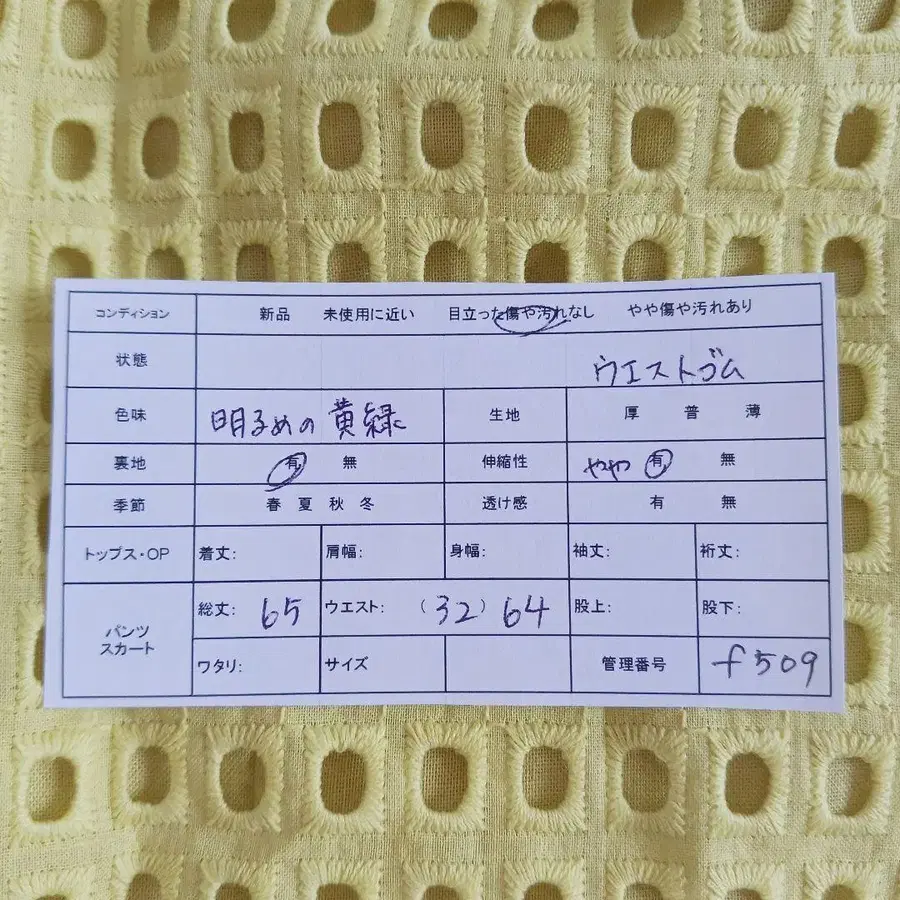 コンディション 新品 未使用に近い 目立った傷や汚れなし やや傷や汚れあり
状態 ウエストゴム
色味 明るめの黄緑 生地 厚 普 薄
裏地 有 無 伸縮性 やや 有 無
季節 春 夏 秋 冬 透け感 有 無
トップス・OP 着丈: 肩幅: 身幅: 袖丈: 裄丈:
パンツ スカート 総丈: 65 ウエスト: (32) 64 股上: 股下:
ワタリ: サイズ 管理番号 f509